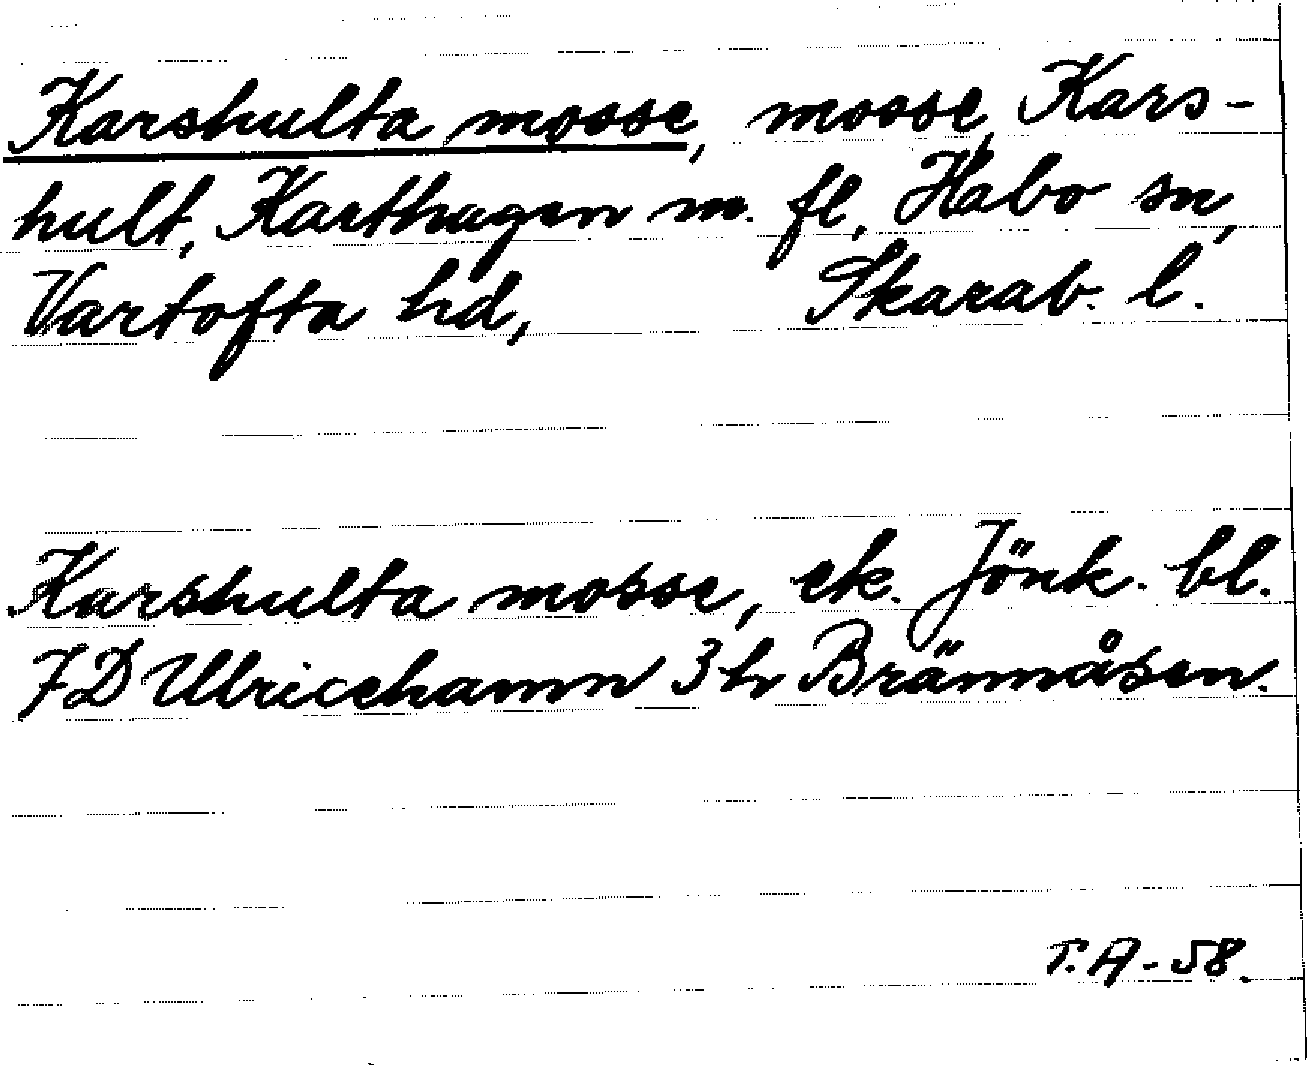 Karshulta mosse, mosse, Kars-
hult, Karthagen m. fl., Habo sn,
Vartofta hd, Skarab. l.
Karshulta mosse, ek. Jönk. bl.
7D Ulricehamn 3h Brännåsen.
T.A-58.